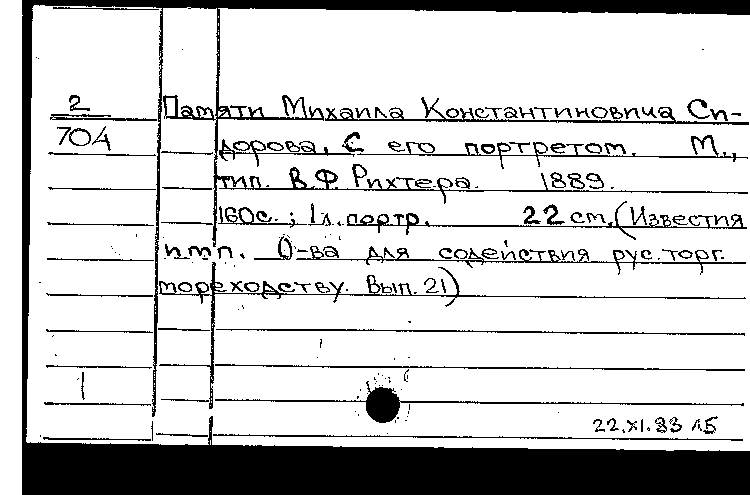 2
704
Памяти Михаила Константиновича Си-
дорова, С его портретом. М.,
тип. В.Ф. Рихтера. 1889.
160с.; 1л.портр. 22 см. (Известия
имп. О-ва для содействия рус.торг.
мореходству. Вып. 21)
1
22.XI.83